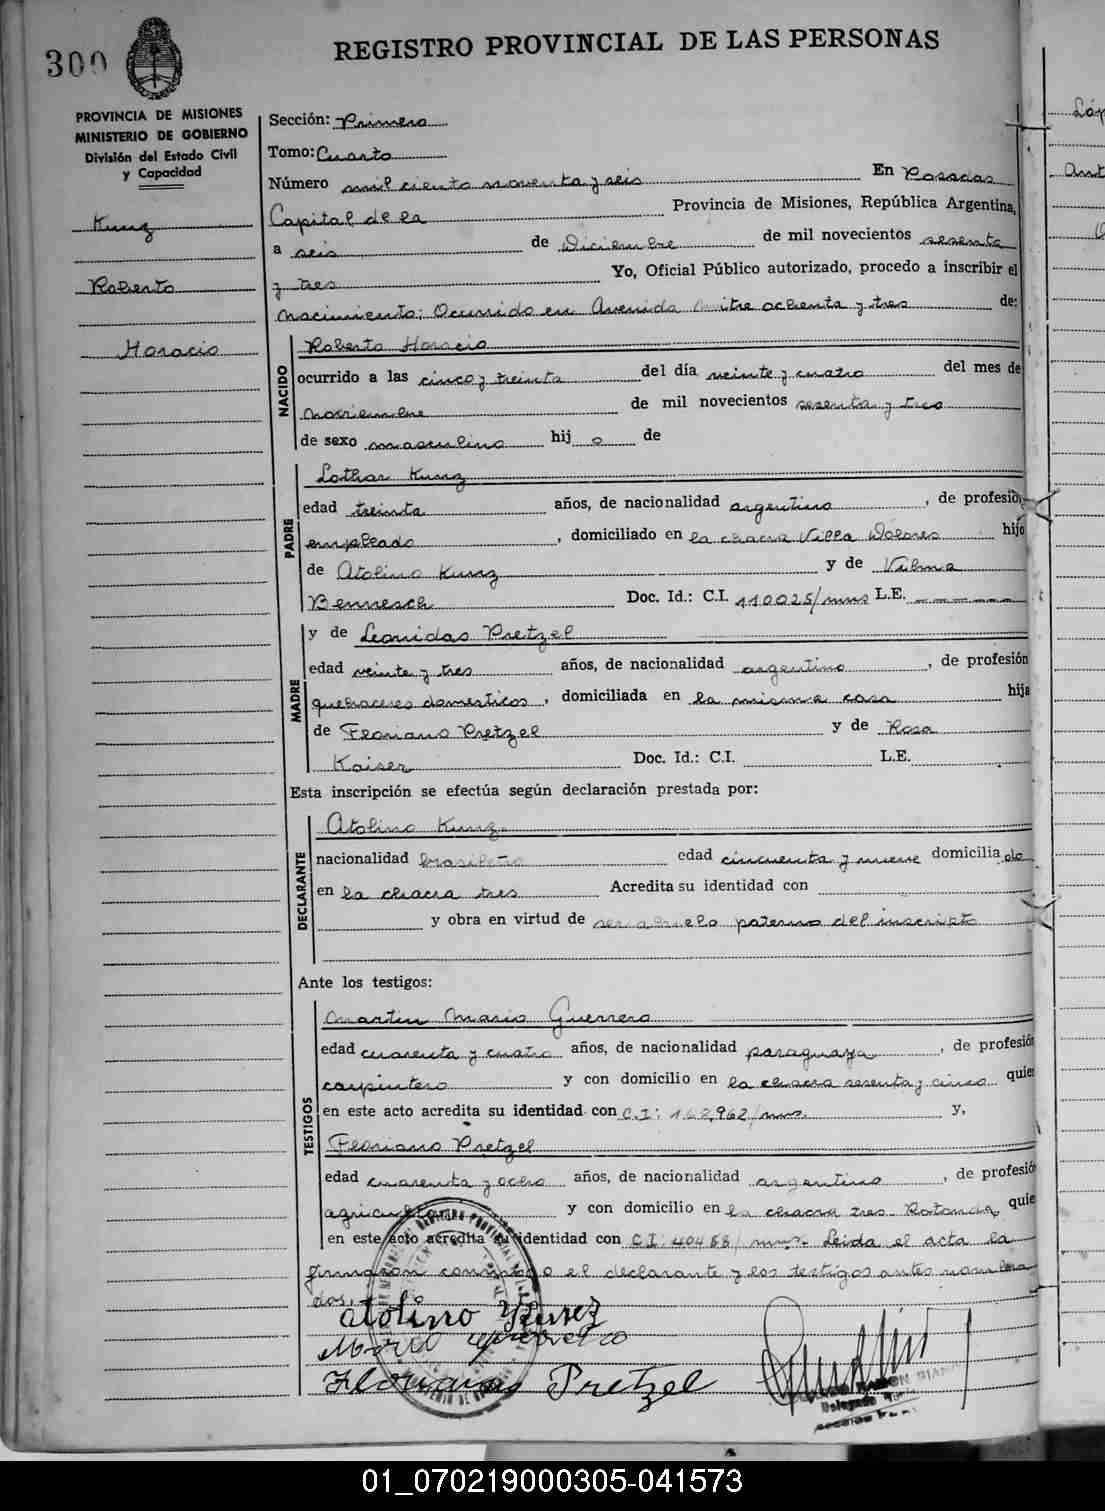 300
REGISTRO PROVINCIAL DE LAS PERSONAS
PROVINCIA DE MISIONES
MINISTERIO DE GOBIERNO
División del Estado Civil
y Capacidad
Kunz
Roberto
Horacio
Sección: Primera
Tomo: Cuarto
Número mil ciento noventa y seis En Posadas
Capital de la Provincia de Misiones, República Argentina,
a seis de Diciembre de mil novecientos sesenta
y tres Yo, Oficial Público autorizado, procedo a inscribir el
nacimiento: Ocurrido en Avenida Mitre ochenta y tres de:
NACIDO
Roberto Horacio
ocurrido a las cinco y treinta del día veinte y cuatro del mes de
noviembre de mil novecientos sesenta y tres
de sexo masculino hij o de
PADRE
Lothar Kunz
edad treinta años, de nacionalidad argentino, de profesión
empleado, domiciliado en la chacra Villa Dolores hijo
de Atolino Kunz y de Vilma
Bennesch Doc. Id.: C.I. 110025/mns L.E.
MADRE
y de Leonidas Pretzel
edad veinte y tres años, de nacionalidad argentina, de profesión
quehaceres domesticos, domiciliada en la misma casa hija
de Floriano Pretzel y de Rosa
Kaiser Doc. Id.: C.I. L.E.
Esta inscripción se efectúa según declaración prestada por:
DECLARANTE
Atolino Kunz
nacionalidad brasileño edad cincuenta y nueve domicilia do
en la chacra tres Acredita su identidad con
y obra en virtud de ser abuelo paterno del inscripto
Ante los testigos:
TESTIGOS
Martin Mario Guerrero
edad cuarenta y cuatro años, de nacionalidad paraguaya, de profesión
carpintero y con domicilio en la chacra sesenta y cinco quie
en este acto acredita su identidad con C.I: 162,962/mns. y,
Floriano Pretzel
edad cuarenta y ocho años, de nacionalidad argentino, de profesió
agricultor y con domicilio en la chacra tres Rotonda, quie
en este acto acredita su identidad con C.I: 40488/mns. Leida el acta la
firmaron conmigo el declarante y los testigos antes nombra
dos.
Atolino Kunz
Mario Guerrero
Floriano Pretzel
Delegado
01_070219000305-041573